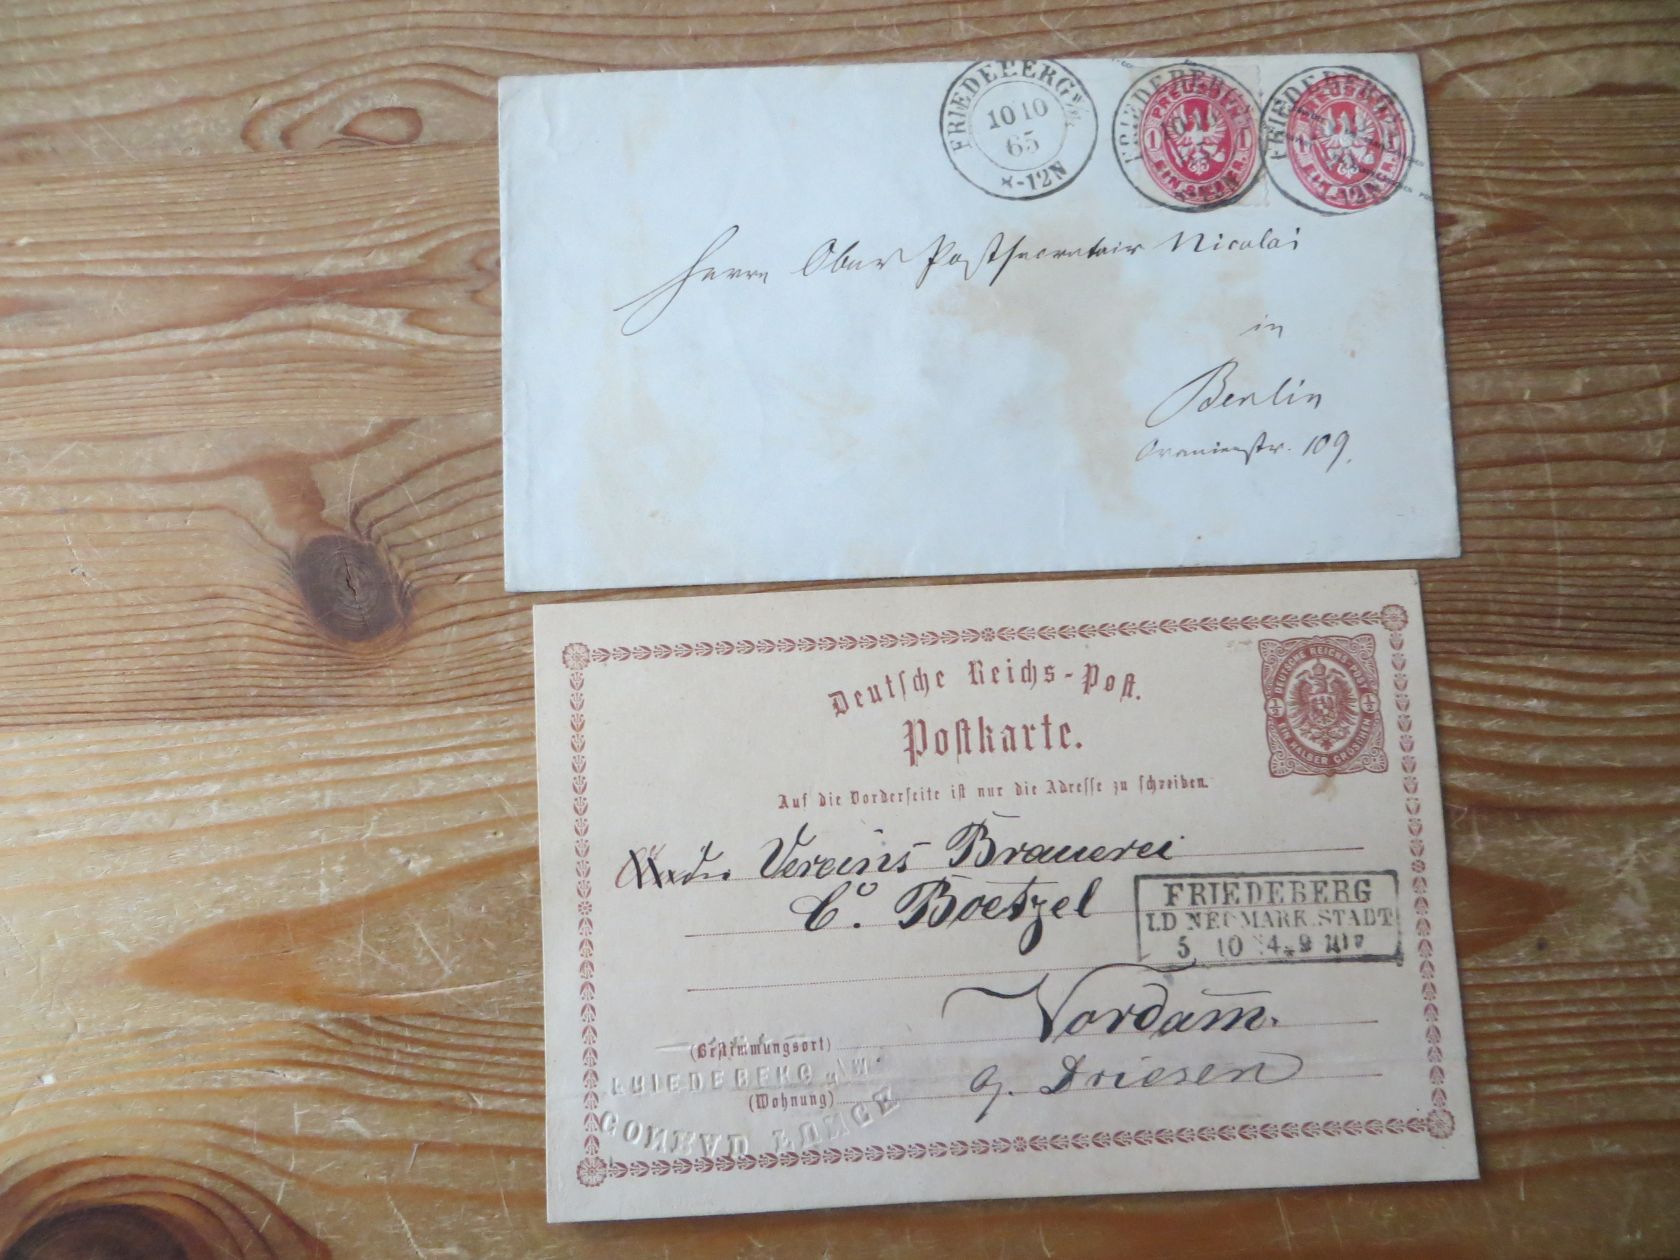 FRIEDEBERG N/M
10 10
65
*-12N
FRIEDEBERG
PREUSSEN
1 1
EIN SILBER. GR.
FRIEDEBERG
12N
Herrn Ober Postsecretair Nicolai
in
Berlin
Oranienstr. 109.
Deutsche Reichs-Post.
Postkarte.
DEUTSCHE REICHS-POST
½ ½
EIN HALBER GROSCHEN
Auf die Vorderseite ist nur die Adresse zu schreiben.
Vereins Brauerei
C. Boetzel
FRIEDEBERG
I.D NEUMARK. STADT
5 10 74
Vordamm.
(Bestimmungsort)
FRIEDEBERG N/M.
(Wohnung)
Driesen
CONRAD